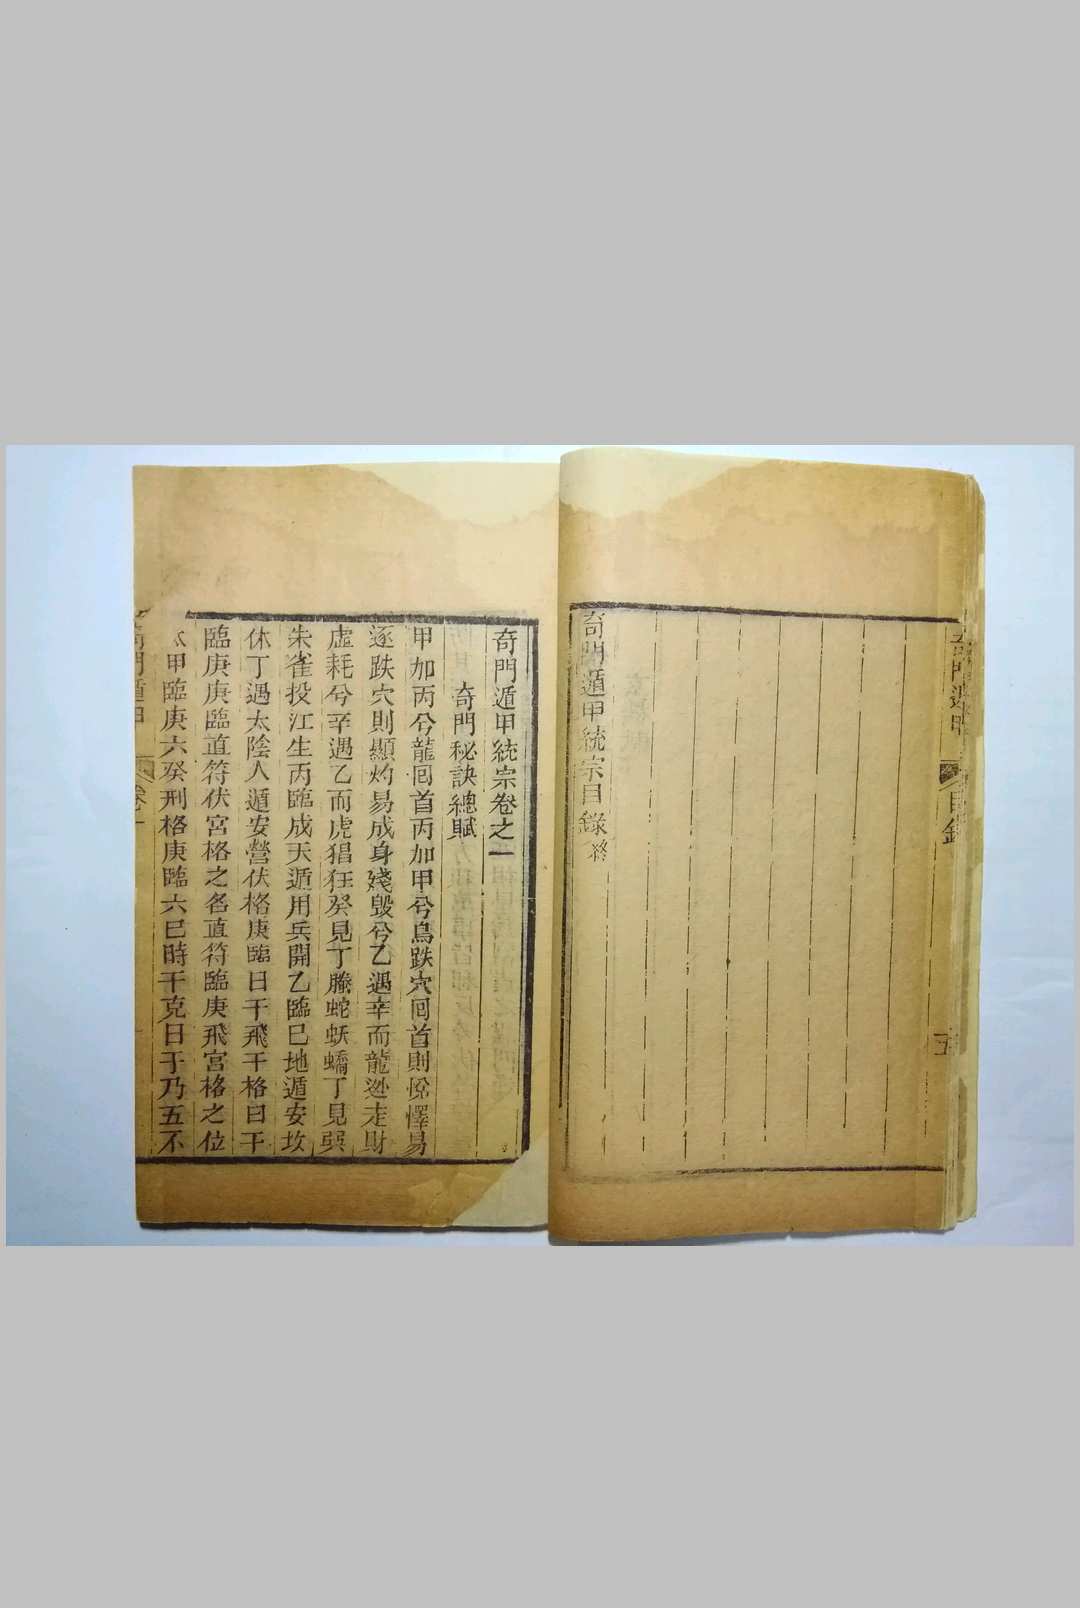 奇門遁甲
目錄
五
奇門遁甲統宗目錄終
奇門遁甲統宗卷之一
奇門秘訣總賦
甲加丙兮龍囘首丙加甲兮鳥跌穴囘首則悅懌易
逐跌穴則顯灼易成身殘毀兮乙遇辛而龍逃走財
虛耗兮辛遇乙而虎猖狂癸見丁螣蛇妖蟜丁見癸
朱雀投江生丙臨戊天遁用兵開乙臨巳地遁安坟
休丁遇太陰人遁安營伏格庚臨日干飛干格曰干
臨庚庚臨直符伏宮格之名直符臨庚飛宮格之位
甲臨庚六癸刑格庚臨六巳時干克日于乃五不
奇門遁甲
卷一